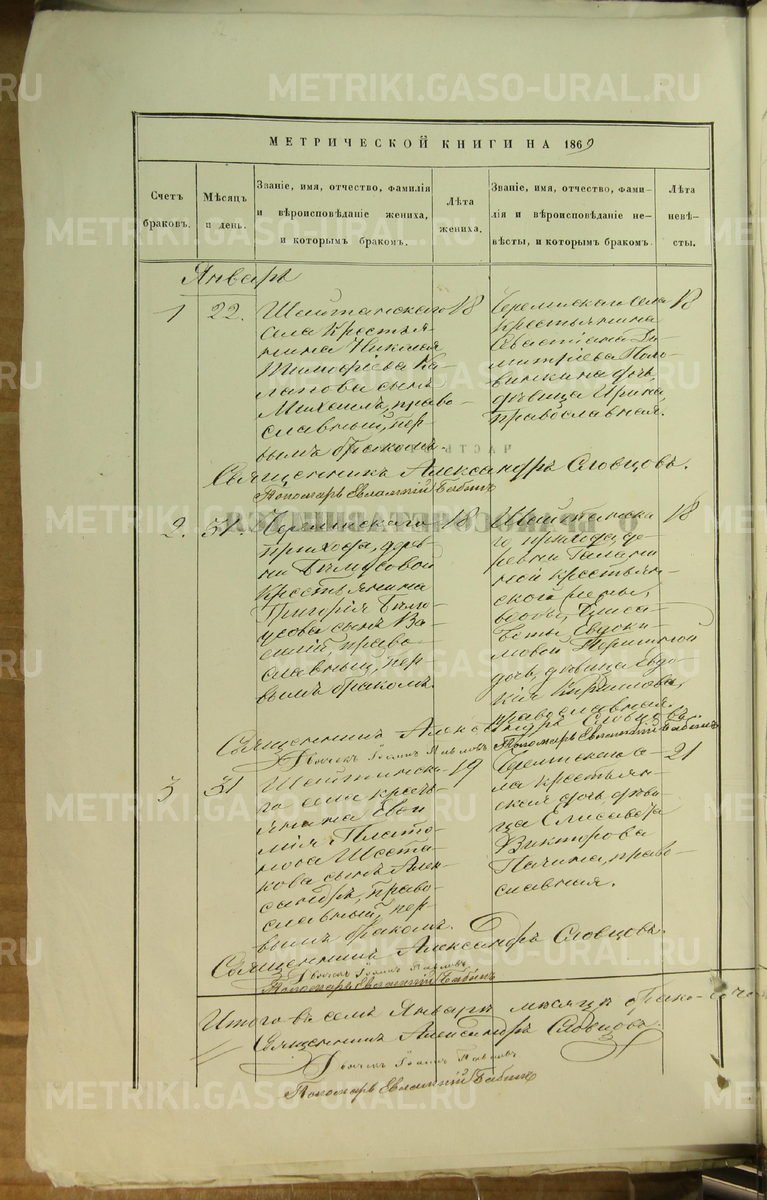 МЕТРИЧЕСКОЙ КНИГИ НА 1869
Счетъ браковъ.
Мѣсяцъ и день.
Званіе, имя, отчество, фамилія
и вѣроисповѣданіе жениха,
и которымъ бракомъ.
Лѣта жениха.
Званіе, имя, отчество, фами-
лія и вѣроисповѣданіе не-
вѣсты, и которымъ бракомъ.
Лѣта невѣ-
сты.
Январь
1 22.
Шайтанскаго
села крестья-
нина Николая
Тимофѣева
сынъ
Михаилъ, право-
славный, пер-
вымъ бракомъ.
18
села
крестьянина
Севастіана Ди-
митріева Поло-
винкина дочь,
дѣвица Ирина,
православная.
18
Священникъ Александръ Словцовъ.
Пономарь Евлампій Бабинъ
2. 31.
прихода, дерев-
ни Бѣлоусовой
крестьянина
Григорія Бѣло-
усова сынъ Ва-
силій, право-
славный, пер-
вымъ бракомъ.
18
Шайтанска-
го прихода де-
ревни
крестьян-
ской
вдовы, Елиса-
веты Евдоки-
мовой
дочь, дѣвица Евдо-
кія Кириллова,
православная.
18
Священникъ Александръ Словцовъ.
Дьячекъ Іоаннъ Павловъ
Пономарь Евлампій Бабинъ
3 31
Шайтанска-
го села кресть-
янина
Плато-
нова Шеста-
кова сынъ Алек-
сандръ, право-
славный, пер-
вымъ бракомъ.
19
се-
ла крестьян-
ская дочь, дѣви-
ца Елисавета
Викторова
православная.
21
Священникъ Александръ Словцовъ.
Дьячекъ Іоаннъ Павловъ
Пономарь Евлампій Бабинъ
Итого въ семъ Январѣ мѣсяцѣ
Священникъ Александръ Словцовъ.
Дьячекъ Іоаннъ Павловъ
Пономарь Евлампій Бабинъ
METRIKI.GASO-URAL.RU